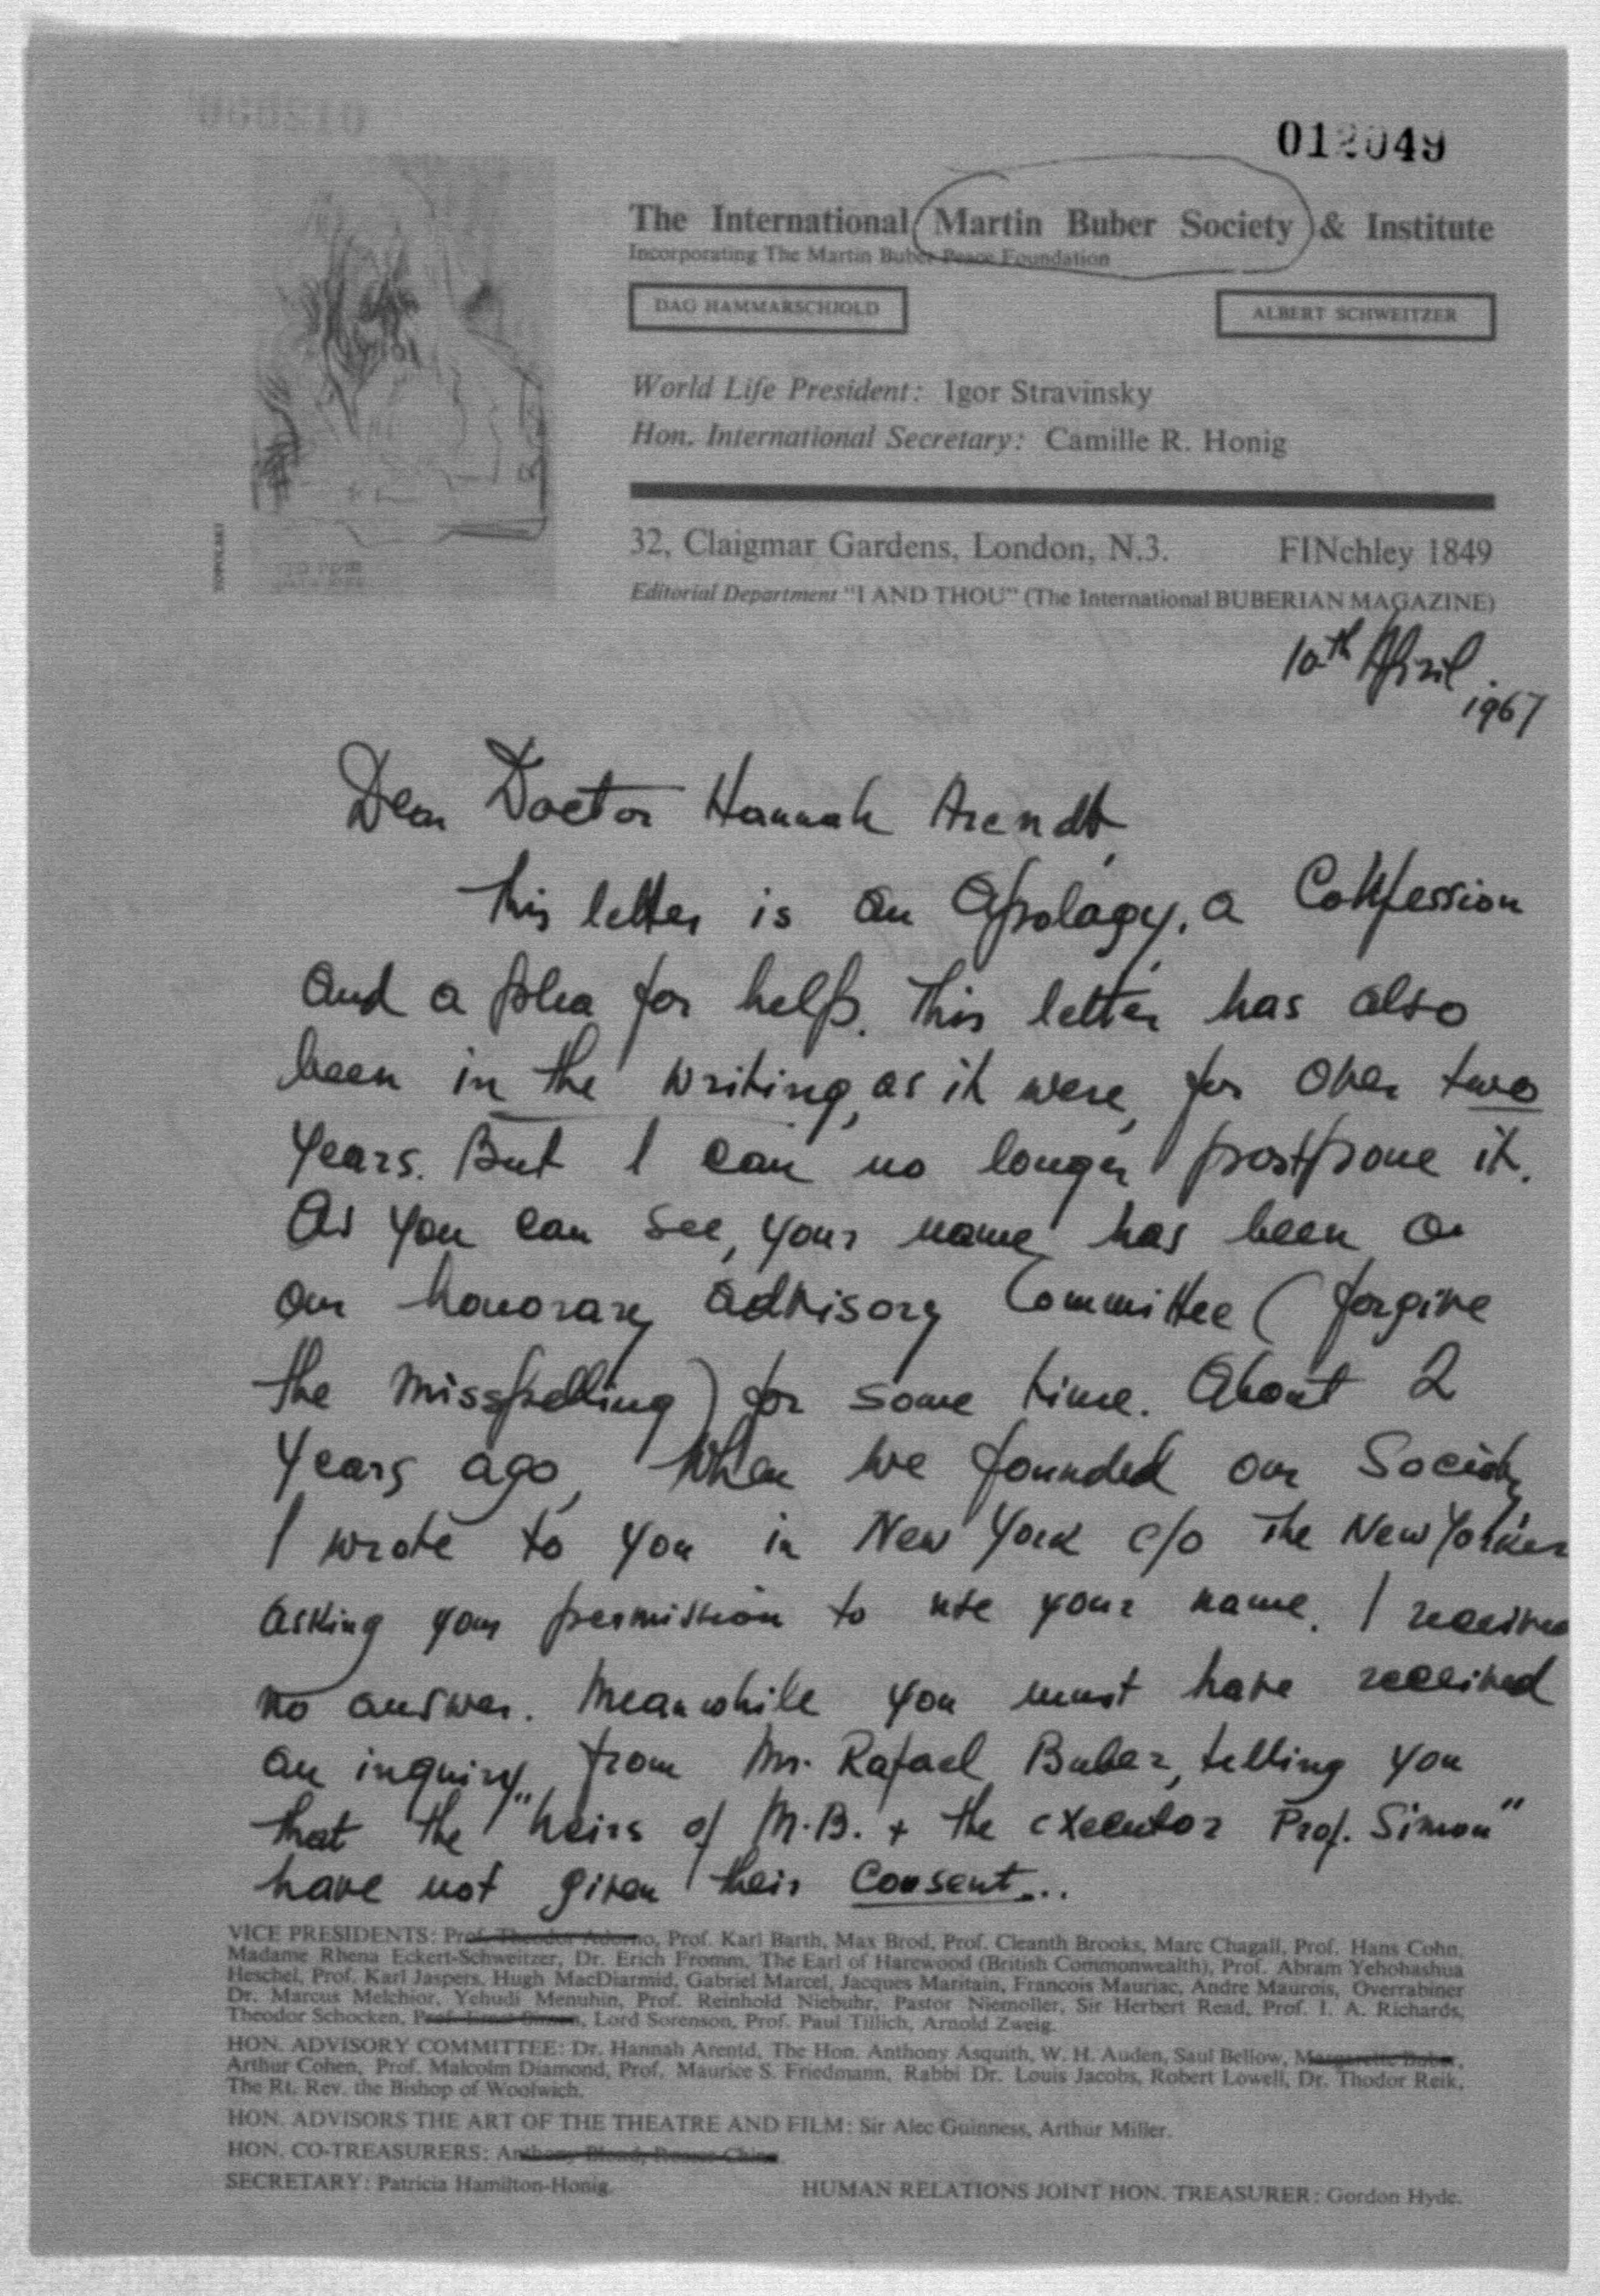 012049
The International Martin Buber Society & Institute
Incorporating The Martin Buber Peace Foundation
DAG HAMMARSCHJOLD
ALBERT SCHWEITZER
World Life President: Igor Stravinsky
Hon. International Secretary: Camille R. Honig
32, Claigmar Gardens, London, N.3. FINchley 1849
Editorial Department "I AND THOU" (The International BUBERIAN MAGAZINE)
10th April
1967
Dear Doctor Hannah Arendt,
This letter is an apology, a Confession
and a plea for help. This letter has also
been in the writing, as it were, for over two
years. But I can no longer postpone it.
As you can see, your name has been on
our honorary advisory Committee (forgive
the misspelling) for some time. About 2
years ago, when we founded our Society,
I wrote to you in New York c/o The New Yorker
asking your permission to use your name. I received
no answer. Meanwhile you must have received
an inquiry from Mr. Rafael Buber, telling you
that the "heirs of M.B. + the executor Prof. Simon"
have not given their Consent...
VICE PRESIDENTS: Prof. Theodor Adorno, Prof. Karl Barth, Max Brod, Prof. Cleanth Brooks, Marc Chagall, Prof. Hans Cohn,
Madame Rhena Eckert-Schweitzer, Dr. Erich Fromm, The Earl of Harewood (British Commonwealth), Prof. Abram Yehohashua
Heschel, Prof. Karl Jaspers, Hugh MacDiarmid, Gabriel Marcel, Jacques Maritain, Francois Mauriac, Andre Maurois, Overrabiner
Dr. Marcus Melchior, Yehudi Menuhin, Prof. Reinhold Niebuhr, Pastor Niemoller, Sir Herbert Read, Prof. I. A. Richards,
Theodor Schocken, Prof. Ernst Simon, Lord Sorenson, Prof. Paul Tillich, Arnold Zweig.
HON. ADVISORY COMMITTEE: Dr. Hannah Arentd, The Hon. Anthony Asquith, W. H. Auden, Saul Bellow, Margarette Buber,
Arthur Cohen, Prof. Malcolm Diamond, Prof. Maurice S. Friedmann, Rabbi Dr. Louis Jacobs, Robert Lowell, Dr. Thodor Reik,
The Rt. Rev. the Bishop of Woolwich.
HON. ADVISORS THE ART OF THE THEATRE AND FILM: Sir Alec Guinness, Arthur Miller.
HON. CO-TREASURERS: Anthony Blond,
SECRETARY: Patricia Hamilton-Honig. HUMAN RELATIONS JOINT HON. TREASURER: Gordon Hyde.